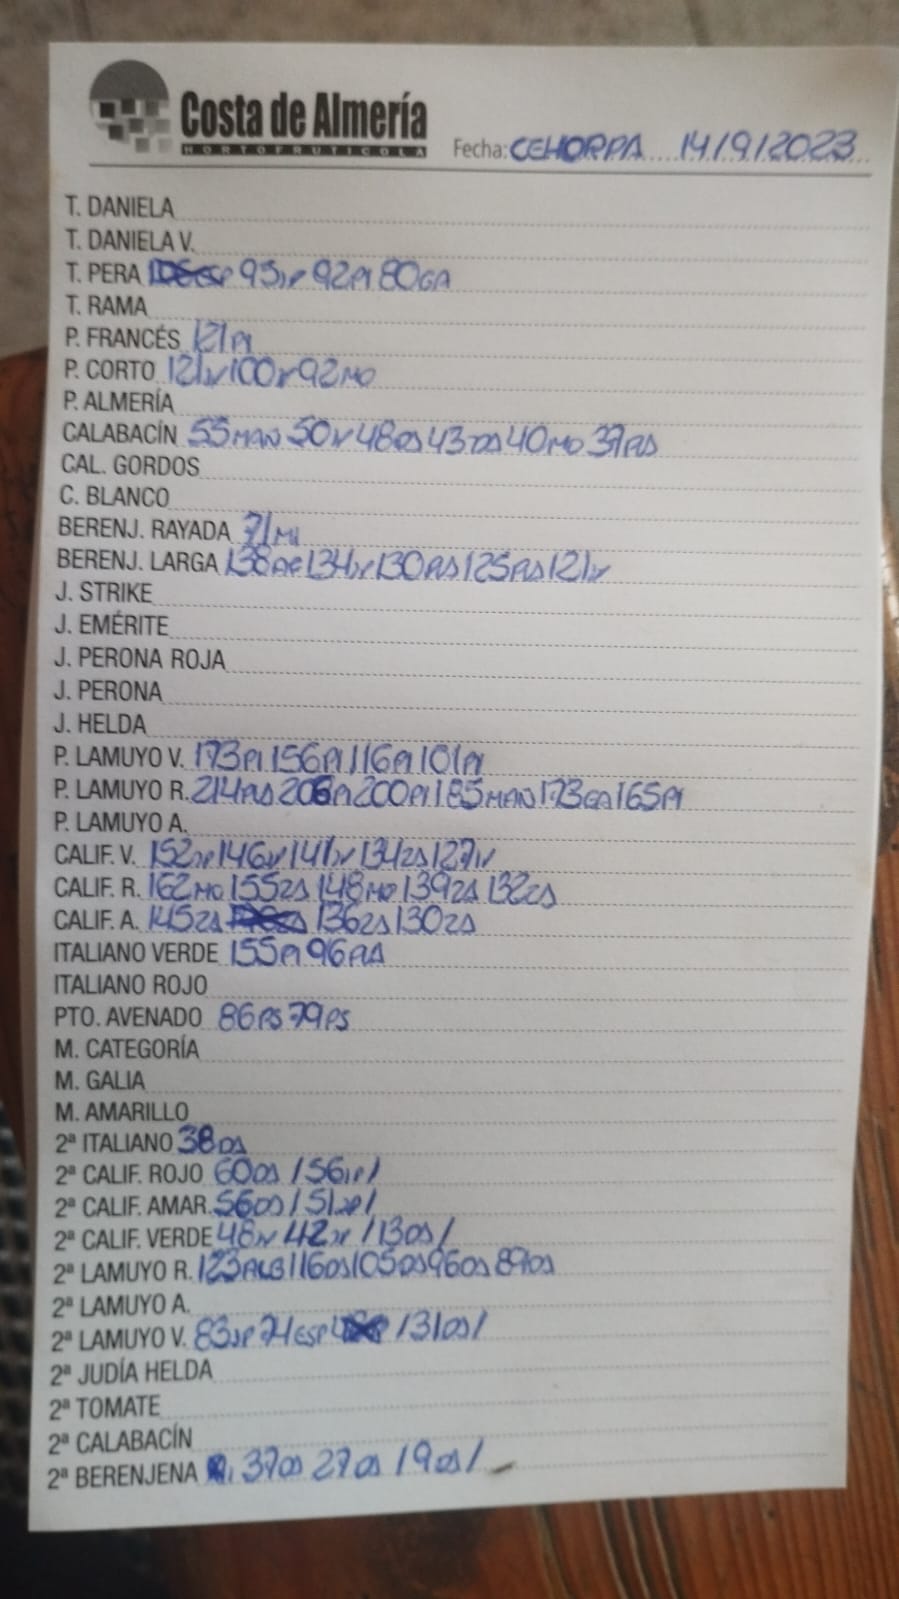 Costa de Almería
HORTOFRUTICOLA
Fecha: CEHORPA 14/9/2023
T. DANIELA
T. DANIELA V.
T. PERA 93JP 92PI 80GA
T. RAMA
P. FRANCÉS 121PI
P. CORTO 121JV 100V 92MO
P. ALMERÍA
CALABACÍN 55MAN 50V 48DS 43DS 40MO 37PJS
CAL. GORDOS
C. BLANCO
BERENJ. RAYADA 71MI
BERENJ. LARGA 138 134JV 130PJS 125PJS 121JV
J. STRIKE
J. EMÉRITE
J. PERONA ROJA
J. PERONA
J. HELDA
P. LAMUYO V. 173PI 156PI 116PI 101PI
P. LAMUYO R. 214PJS 206PI 200PI 185MAN 173GA 165PI
P. LAMUYO A.
CALIF. V. 152JP 146JV 141JV 134ZS 127JV
CALIF. R. 162MO 155ZS 148MO 139ZS 132ZS
CALIF. A. 145ZS 136ZS 130ZS
ITALIANO VERDE 155PI 96
ITALIANO ROJO
PTO. AVENADO 86PS 79PS
M. CATEGORÍA
M. GALIA
M. AMARILLO
2ª ITALIANO 38DS
2ª CALIF. ROJO 60DS /56JP/
2ª CALIF. AMAR. 56DS /51JP/
2ª CALIF. VERDE 48JV 42JP /13DS/
2ª LAMUYO R. 123ALB 116DS 105DS 96DS 89DS
2ª LAMUYO A.
2ª LAMUYO V. 83JP 74ESP /31DS/
2ª JUDÍA HELDA
2ª TOMATE
2ª CALABACÍN
2ª BERENJENA 37DS 27DS /9DS/